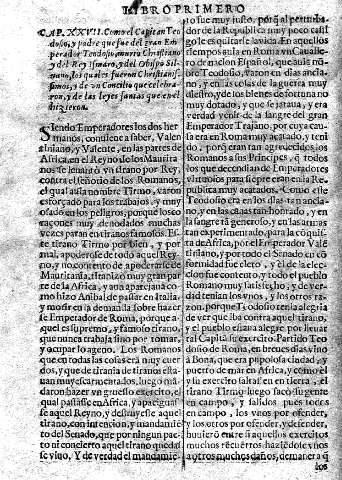 LIBRO PRIMERO
CAP. XXVII. Como el Capitan Teo
dosio, y padre que fue del gran Emper
ador Teodosio, murio Christiano
y del Rey Ismaro, y del Obispo Sil
uano, los quales fueron Christianis-
simos, y de vn Concilio que celebra-
ron, y de las leyes santas que en el
hizieron.
SIendo Emperadores los dos her
manos, conuiene a saber, Valen
tiniano, y Valente, en las partes de
Africa, en el Reyno de los Maurita
nos se leuantò vn tirano por Rey,
contra el señorio de los Romanos,
el qual auia nombre Tirmo, varon
esforçado para los trabajos, y muy
osado en los peligros, porque los co
raçones muy denodados muchas
vezes paran en tiranos famosos. Es-
te tirano Tirmo por bien, y por
mal, apoderose de todo aquel Rey-
no, y no contento de apoderarse de
Mauritania, tiranizò muy gran par-
te de la Africa, y aun aparejaua co
mo hizo Anibal de passar en Italia,
y morir en la demanda sobre hazer
se Emperador de Roma, porque a-
quel es supremo, y famoso tirano,
que nunca trabaja sino por tomar,
y ocupar lo ageno. Los Romanos
que en todas las cosas eran muy cuer
dos, y que de tirania de tiranos esta-
uan muy escarmentados, luego mã
daron hazer vn gruesso exercito,
el qual passasse en Africa, y apaziguas
se aquel Reyno, y destruyesse aquel
tirano, con intencion, y mandamiẽ
to del Senado, que por ningun pac-
to ni concierto aquel tirano queda-
se viuo, Y de verdad el mandamiẽ-
to fue muy justo, porq̃ al perturba-
dor de la Republica muy poco casti
go le es quitarle la vida. En aquellos
tiempos auia en Roma vn Cauallero
de nacion Español, que auia nom
bre Teodosio, varon en dias ancia
no, y en las cosas de la guerra muy
diestro, y de los bienes de fortuna no
muy dotado, y que se jataua, y era
verdad venir de la sangre del gran
Emperador Trajano, por cuya cau-
sa era en Roma muy acatado, y teni
do, porq̃ eran tan agradecidos los
Romanos a sus Principes, q̃ todos
los que decendian de Emperadores
virtuosos para siempre eran en la Re
publica muy acatados. Como este
Teodosio era en los dias tan ancia-
no, y en las canas tan honrado, y en
la sangre tan generoso, y en las armas
tan experimentado, para la conquis
ta de Africa, por el Emperador Vale
tiniano, y por todo el Senado en cõ
formidad fue electo, y el de la elec-
cion fue contento, y todo el pueblo
Romano muy satisfecho, y de ver-
dad tenian los vnos, y los otros ra-
zon, porque Teodosio tenia alegria
de ver que iba contra aquel tirano,
y el pueblo estaua alegre por lleuar
tal Capitã su exercito. Partido Teo
dosio de Roma, en breues dias vino
a Bona, que era populosa ciudad, y
puerto de mar en Africa, y como el
y su exercito saltasse en tierra, el
tirano Tirmo luego sacò su gente
en campo, y assi los pues todos
en campo, los vnos por ofender,
y los otros por ofender, y defender,
huuierõ entre si aquellos exercitos
muchos recuentros haziendole vnos
a otros muchos daños, de manera q̃
los